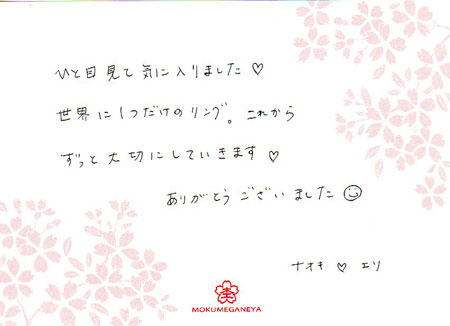 ひと目見て気に入りました♡
世界に1つだけのリング。これから
ずっと大切にしていきます♡
ありがとうございました☺
ナオキ ♡ エリ
MOKUMEGANEYA